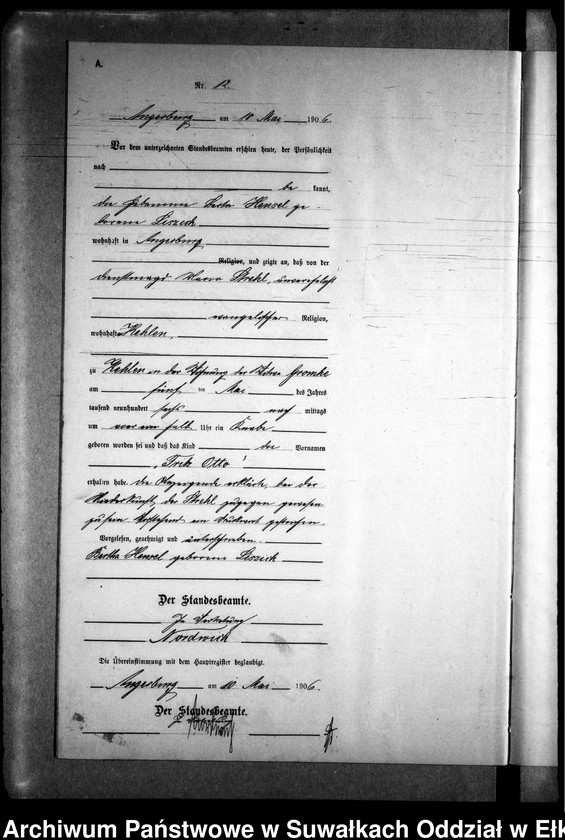 A.
Nr. 12.
Angerburg am 10 Mai 1906.
Vor dem unterzeichneten Standesbeamten erschien heute, der Persönlichkeit
nach
be kannt,
die Hebamme Berta Hensel ge-
borene Leszick
wohnhaft in Angerburg
Religion, und zeigte an, daß von der
Dienstmagd Strehl, unverehelicht
evangelischer Religion,
wohnhaft Kehlen,
zu Kehlen in der Wohnung der Gromke
am fünf ten Mai des Jahres
tausend neunhundert sechs nach mittags
um ein halb Uhr ein Knabe
geboren worden sei und daß das Kind die Vornamen
„Fritz Otto"
erhalten habe. Die Anzeigende erklärte, bei der
Niederkunft der Strehl zugegen gewesen
zu sein. Vorstehend ein Druckwort gestrichen.
Vorgelesen, genehmigt und unterschrieben.
Bertha Hensel geborene Leszick
Der Standesbeamte.
In Vertretung
Nordwich
Die Übereinstimmung mit dem Hauptregister beglaubigt.
Angerburg am 10 Mai 1906.
Der Standesbeamte.
Archiwum Państwowe w Suwałkach Oddział w Ełk